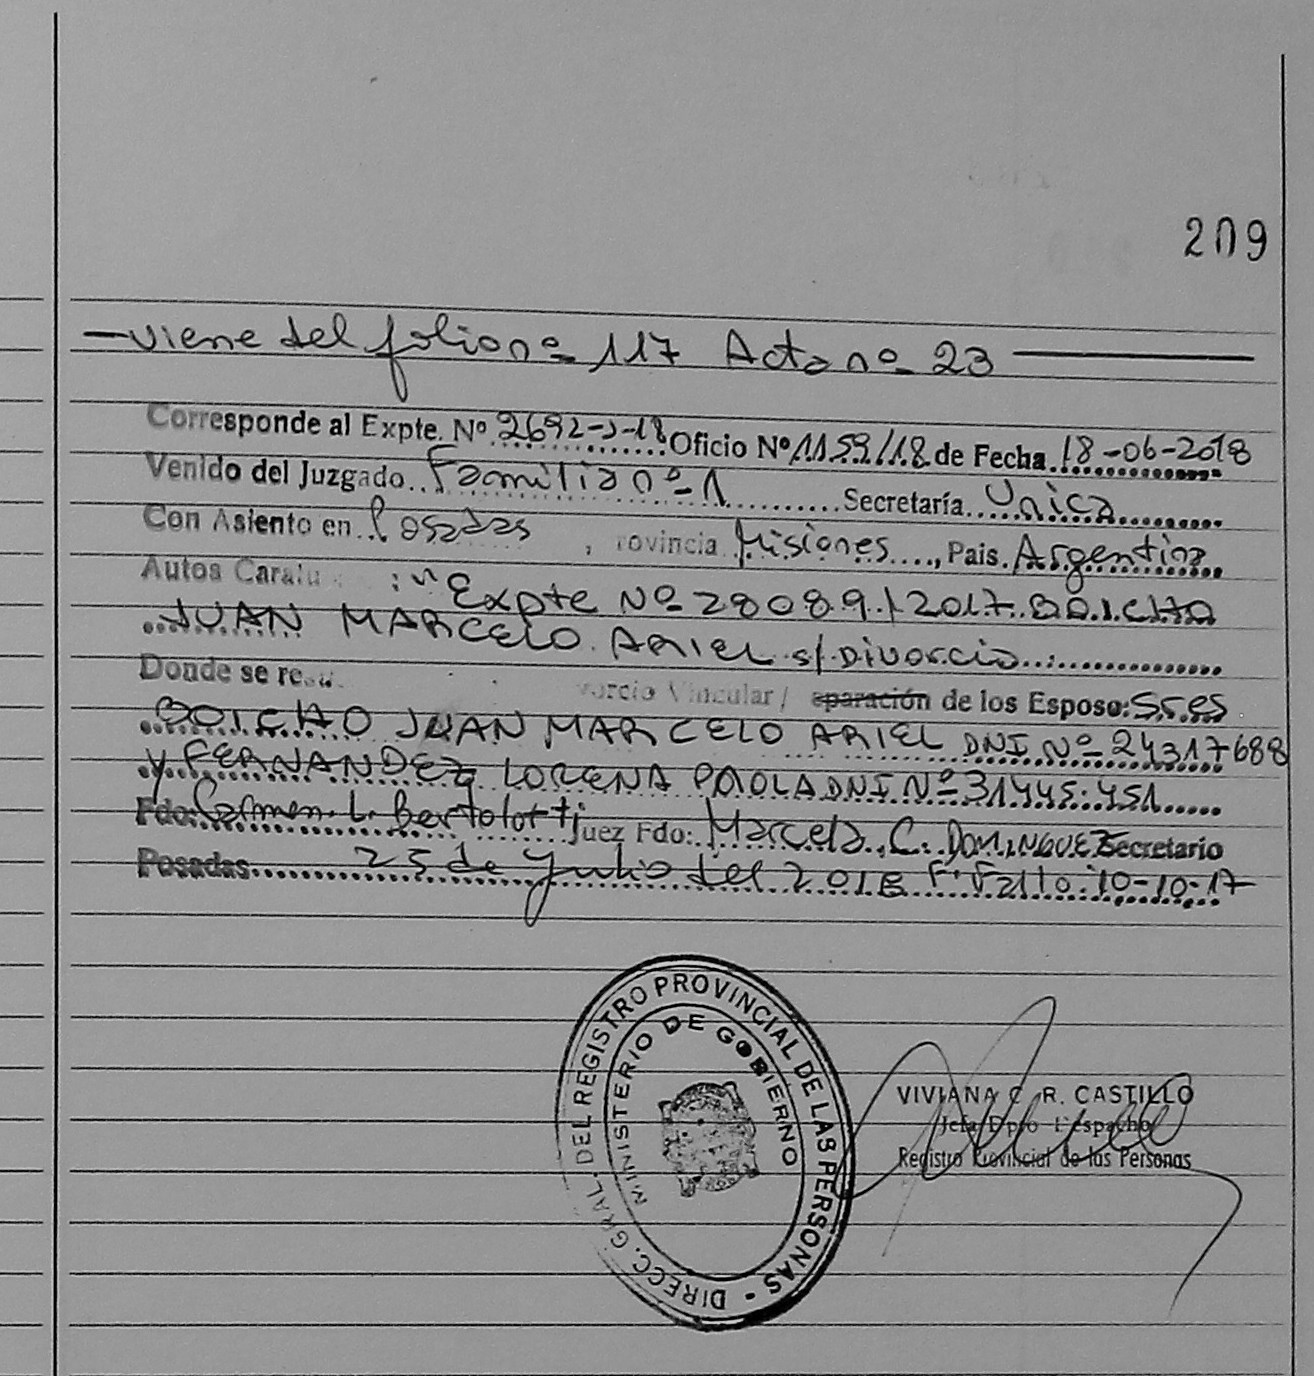 209
— viene del folio nº 117 Acta nº 23 —
Corresponde al Expte. Nº 2692-J-18 Oficio Nº 1159/18 de Fecha 18-06-2018
Venido del Juzgado Familia nº-1 Secretaría Unica
Con Asiento en Posadas, rovincia Misiones, Pais. Argentina
Autos Caratu : "Expte Nº 28089/2017 BOICHO
JUAN MARCELO ARIEL s/ Divorcio
Donde se resu vorcio Vincular / eparación de los Esposo: Sres
BOICHO JUAN MARCELO ARIEL DNI Nº 24317688
y FERNANDEZ LORENA PAOLA DNI Nº 31445.451
Fdo: Carmen. L. Bertolotti juez Fdo: Marcela. C. DOMINGUEZ Secretario
Posadas 25 de julio del 2018 F. Fallo: 10-10-17
DIRECC. GRAL. DEL REGISTRO PROVINCIAL DE LAS PERSONAS -
MINISTERIO DE GOBIERNO
VIVIANA C. R. CASTILLO
Jefa Dpto Despacho
Registro Provincial de las Personas